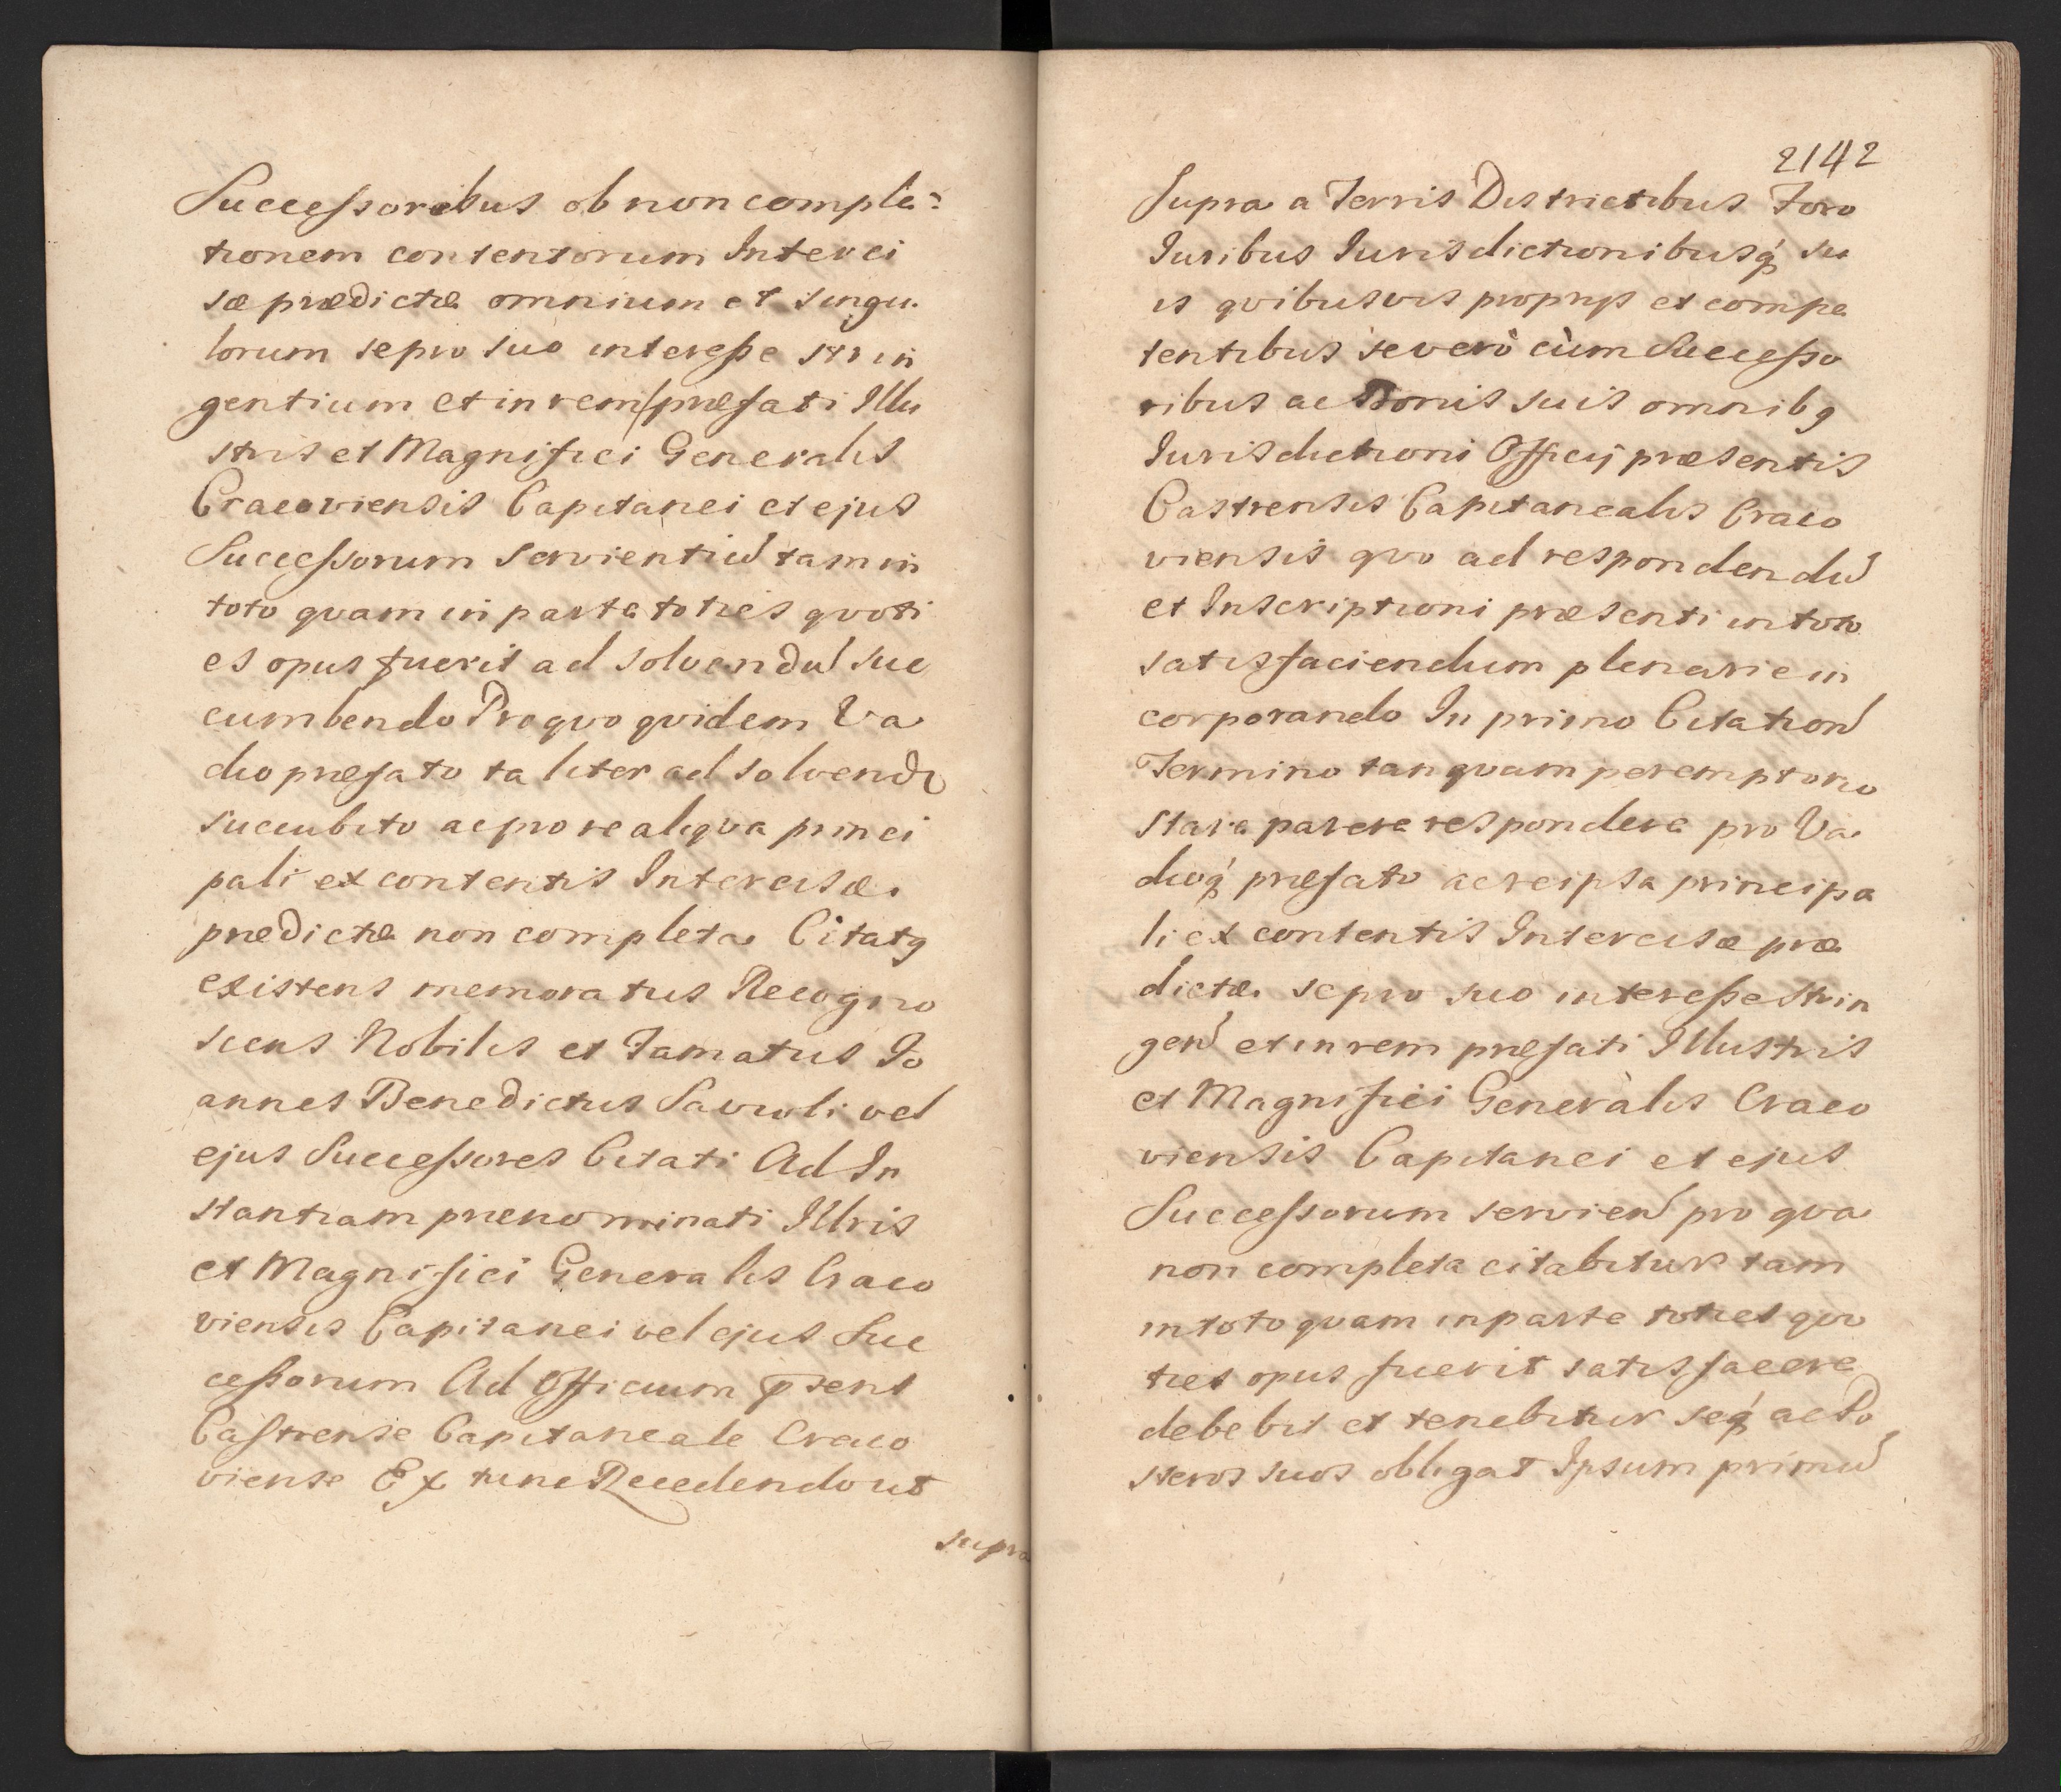 Successoribus ob non comple=
tionem contentorum Interci
sæ prædictæ omnium et singu
lorum se pro suo interesse strin
gentium et in rem præfati Illu
stris et Magnifici Generalis
Cracoviensis Capitanei et ejus
Successorum servientiu tam in
toto qvam in parte toties qvoti
es opus fuerit ad solvendu suc
cumbendo Pro qvo qvidem Va
dio præfato taliter ad solvend
succubito ac pro re aliqva princi
pali ex contentis Intercisæ
prædictæ non completa Citatq
existens memoratus Recogno
scens Nobilis et Famatus Jo
annes Benedictus Savioli vel
ejus Successores Citati Ad In
stantiam prænominati Illris
et Magnifici Generalis Craco
viensis Capitanei vel ejus Suc
cessorum Ad Officium Psens
Castrense Capitaneale Craco
viense Ex tunc Recedendo ut
supra
2142
Supra a Terris Districtibus Foro
Iuribus Iurisdictionibusq́ su
is qvibusvis proprys et compe
tentibus se verò cùm Successo
ribus ac Bonis suis omnibq
Iurisdictioni Officij præsentis
Castrensis Capitanealis Craco
viensis qvo ad respondendu
et Inscriptioni præsenti in toto
satisfaciendum plenarie in
corporando In primo Citation
Termino tanqvam peremptorio
Stare parere respondere pro Va
dioq́ præfato ac re ipsa principa
li ex contentis Intercisæ præ
dictæ se pro suo interesse Strin
gen et in rem præfati Illustris
et Magnifici Generàlis Craco
viensis Capitanei et ejus
Successorum servien pro qva
non completa citabitur tam
in toto qvam in parte toties qvo
ties opus fuerit satisfacere
debebit et tenebitur seq́ ac Po
steros suos obligat Ipsum primu